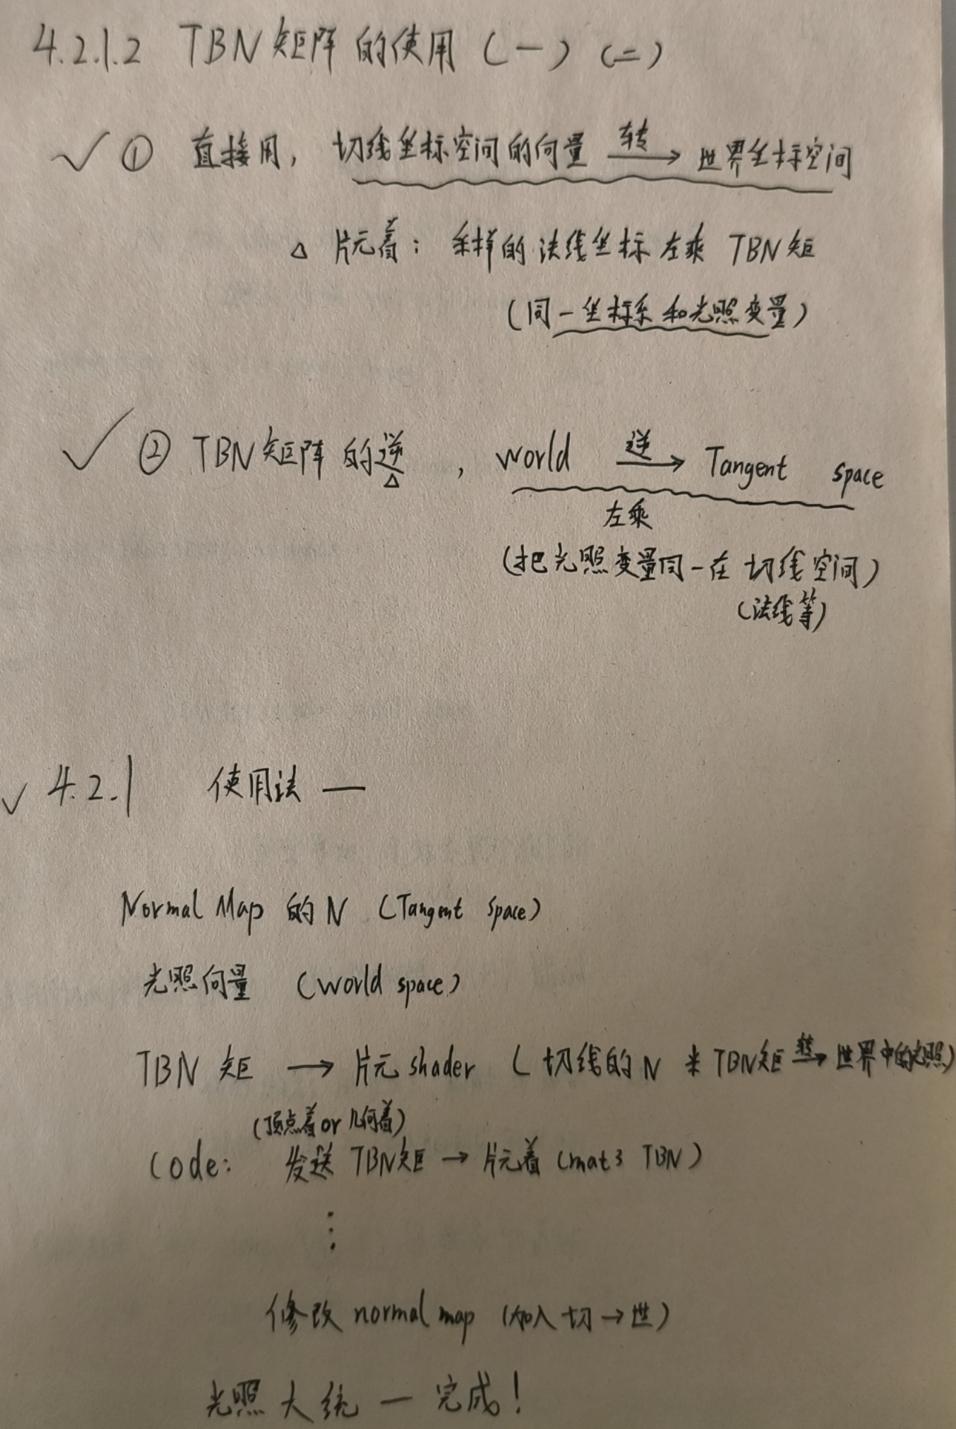 4.2.1.2 TBN矩阵的使用(一)(二)
✓ ① 直接用, 切线坐标空间的向量 转→ 世界坐标空间
△ 片元着: 采样的法线坐标左乘 TBN矩
(同一坐标系和光照变量)
✓ ② TBN矩阵的逆, World 逆→ Tangent space
左乘
(把光照变量同一在切线空间)
(法线等)
✓ 4.2.1 使用法一
Normal Map 的N (Tangent space)
光照向量 (World space)
TBN 矩 → 片元shader ( 切线的N * TBN矩 转→ 世界中的光照)
(顶点着or几何着)
Code: 发送TBN矩 → 片元着(mat3 TBN)
⋮
修改 normal map (加入切→世)
光照大统一完成!